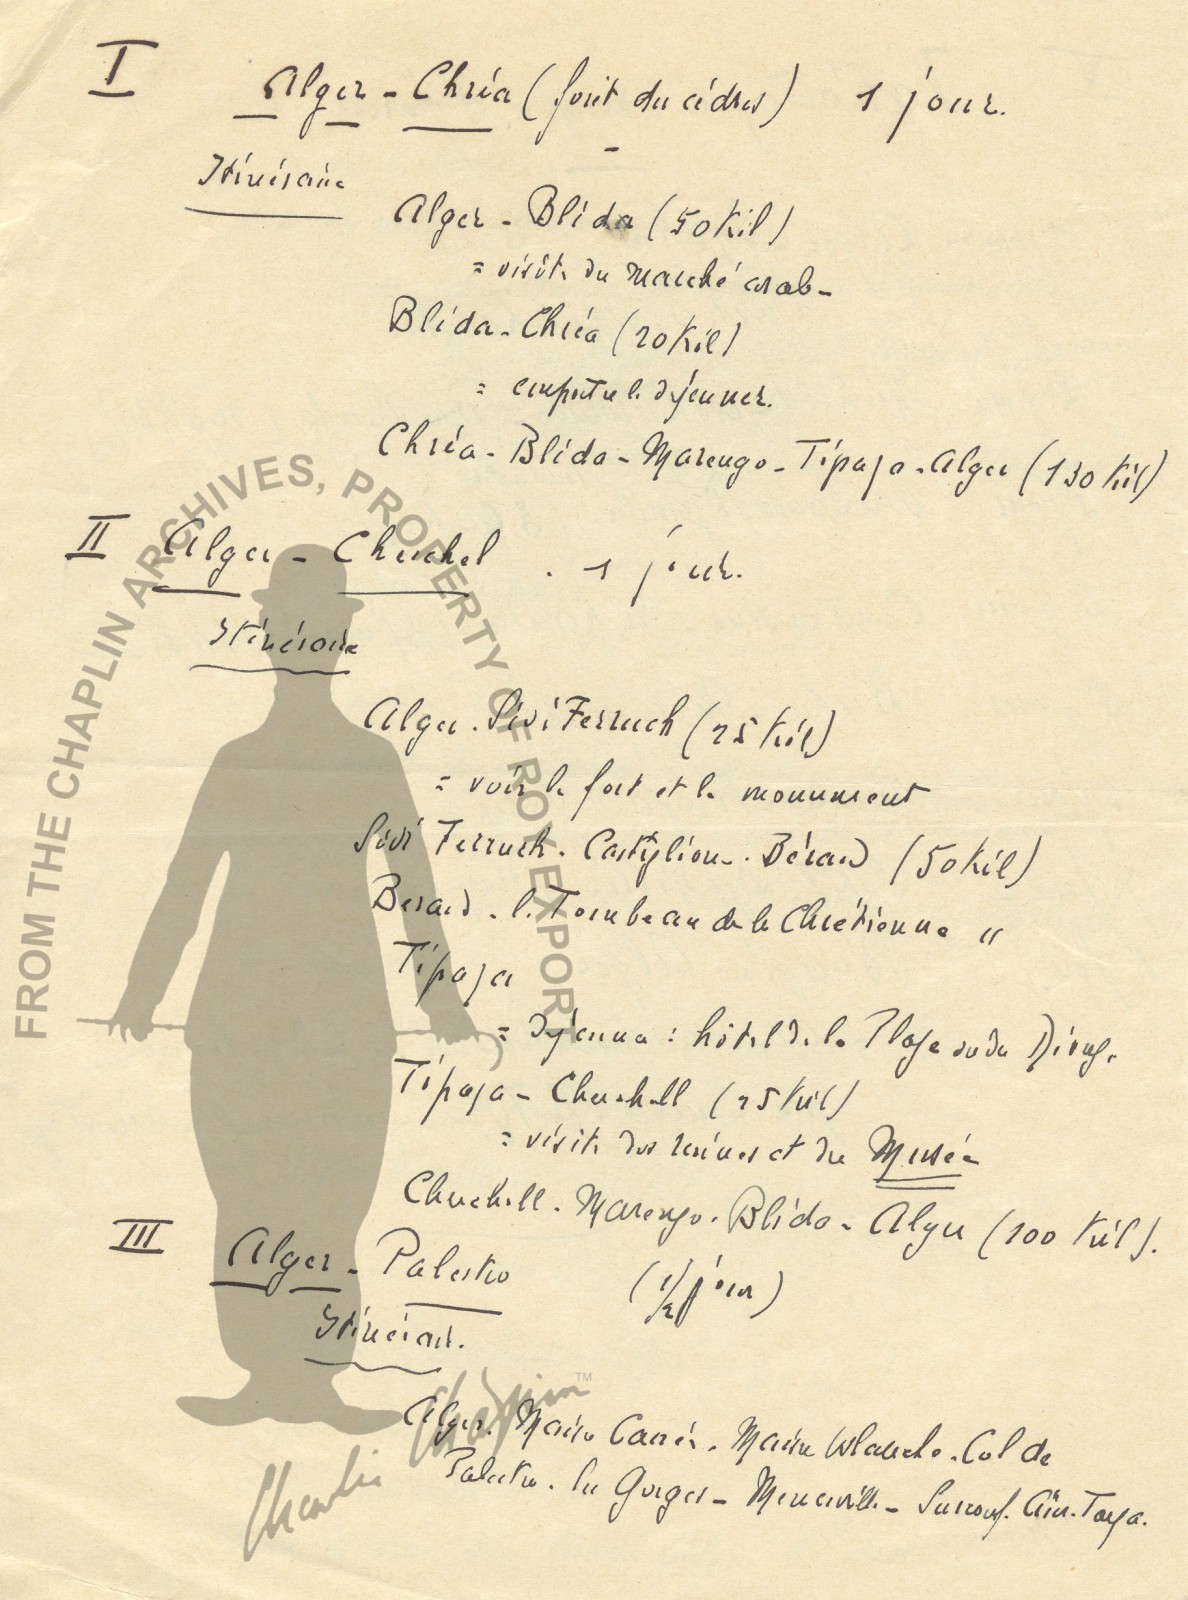 I
Alger - Chréa (forêt du cèdres) 1 jour.
Itinéraire
Alger - Blida (50 Kil)
= visite du marché arabe -
Blida - Chréa (20 Kil)
= emporter le déjeuner.
Chréa - Blida - Marengo - Tipaza - Alger (130 Kil)
II Alger - Cherchel . 1 jour.
Itinéraire
Alger - Sidi Ferruch (25 Kil)
= voir le fort et le monument
Sidi Ferruch - Castiglione - Bérard (50 Kil)
Berard - le Tombeau de la Chrétienne "
Tipaza
= Déjeuner : hôtel de la Plage ou du Rivage
Tipaza - Cherchell (25 Kil)
= visite des ruines et du Musée
Cherchell - Marengo - Blida - Alger (100 Kil).
III Alger - Palestro (1/2 jour)
Itinéraire.
Alger. Maison Carrée. Maison blanche. Col de
Palestro. les Gorges - Menerville - Surcouf. Aïn-Taya.
FROM THE CHAPLIN ARCHIVES, PROPERTY OF ROY EXPORT
Charlie Chaplin™